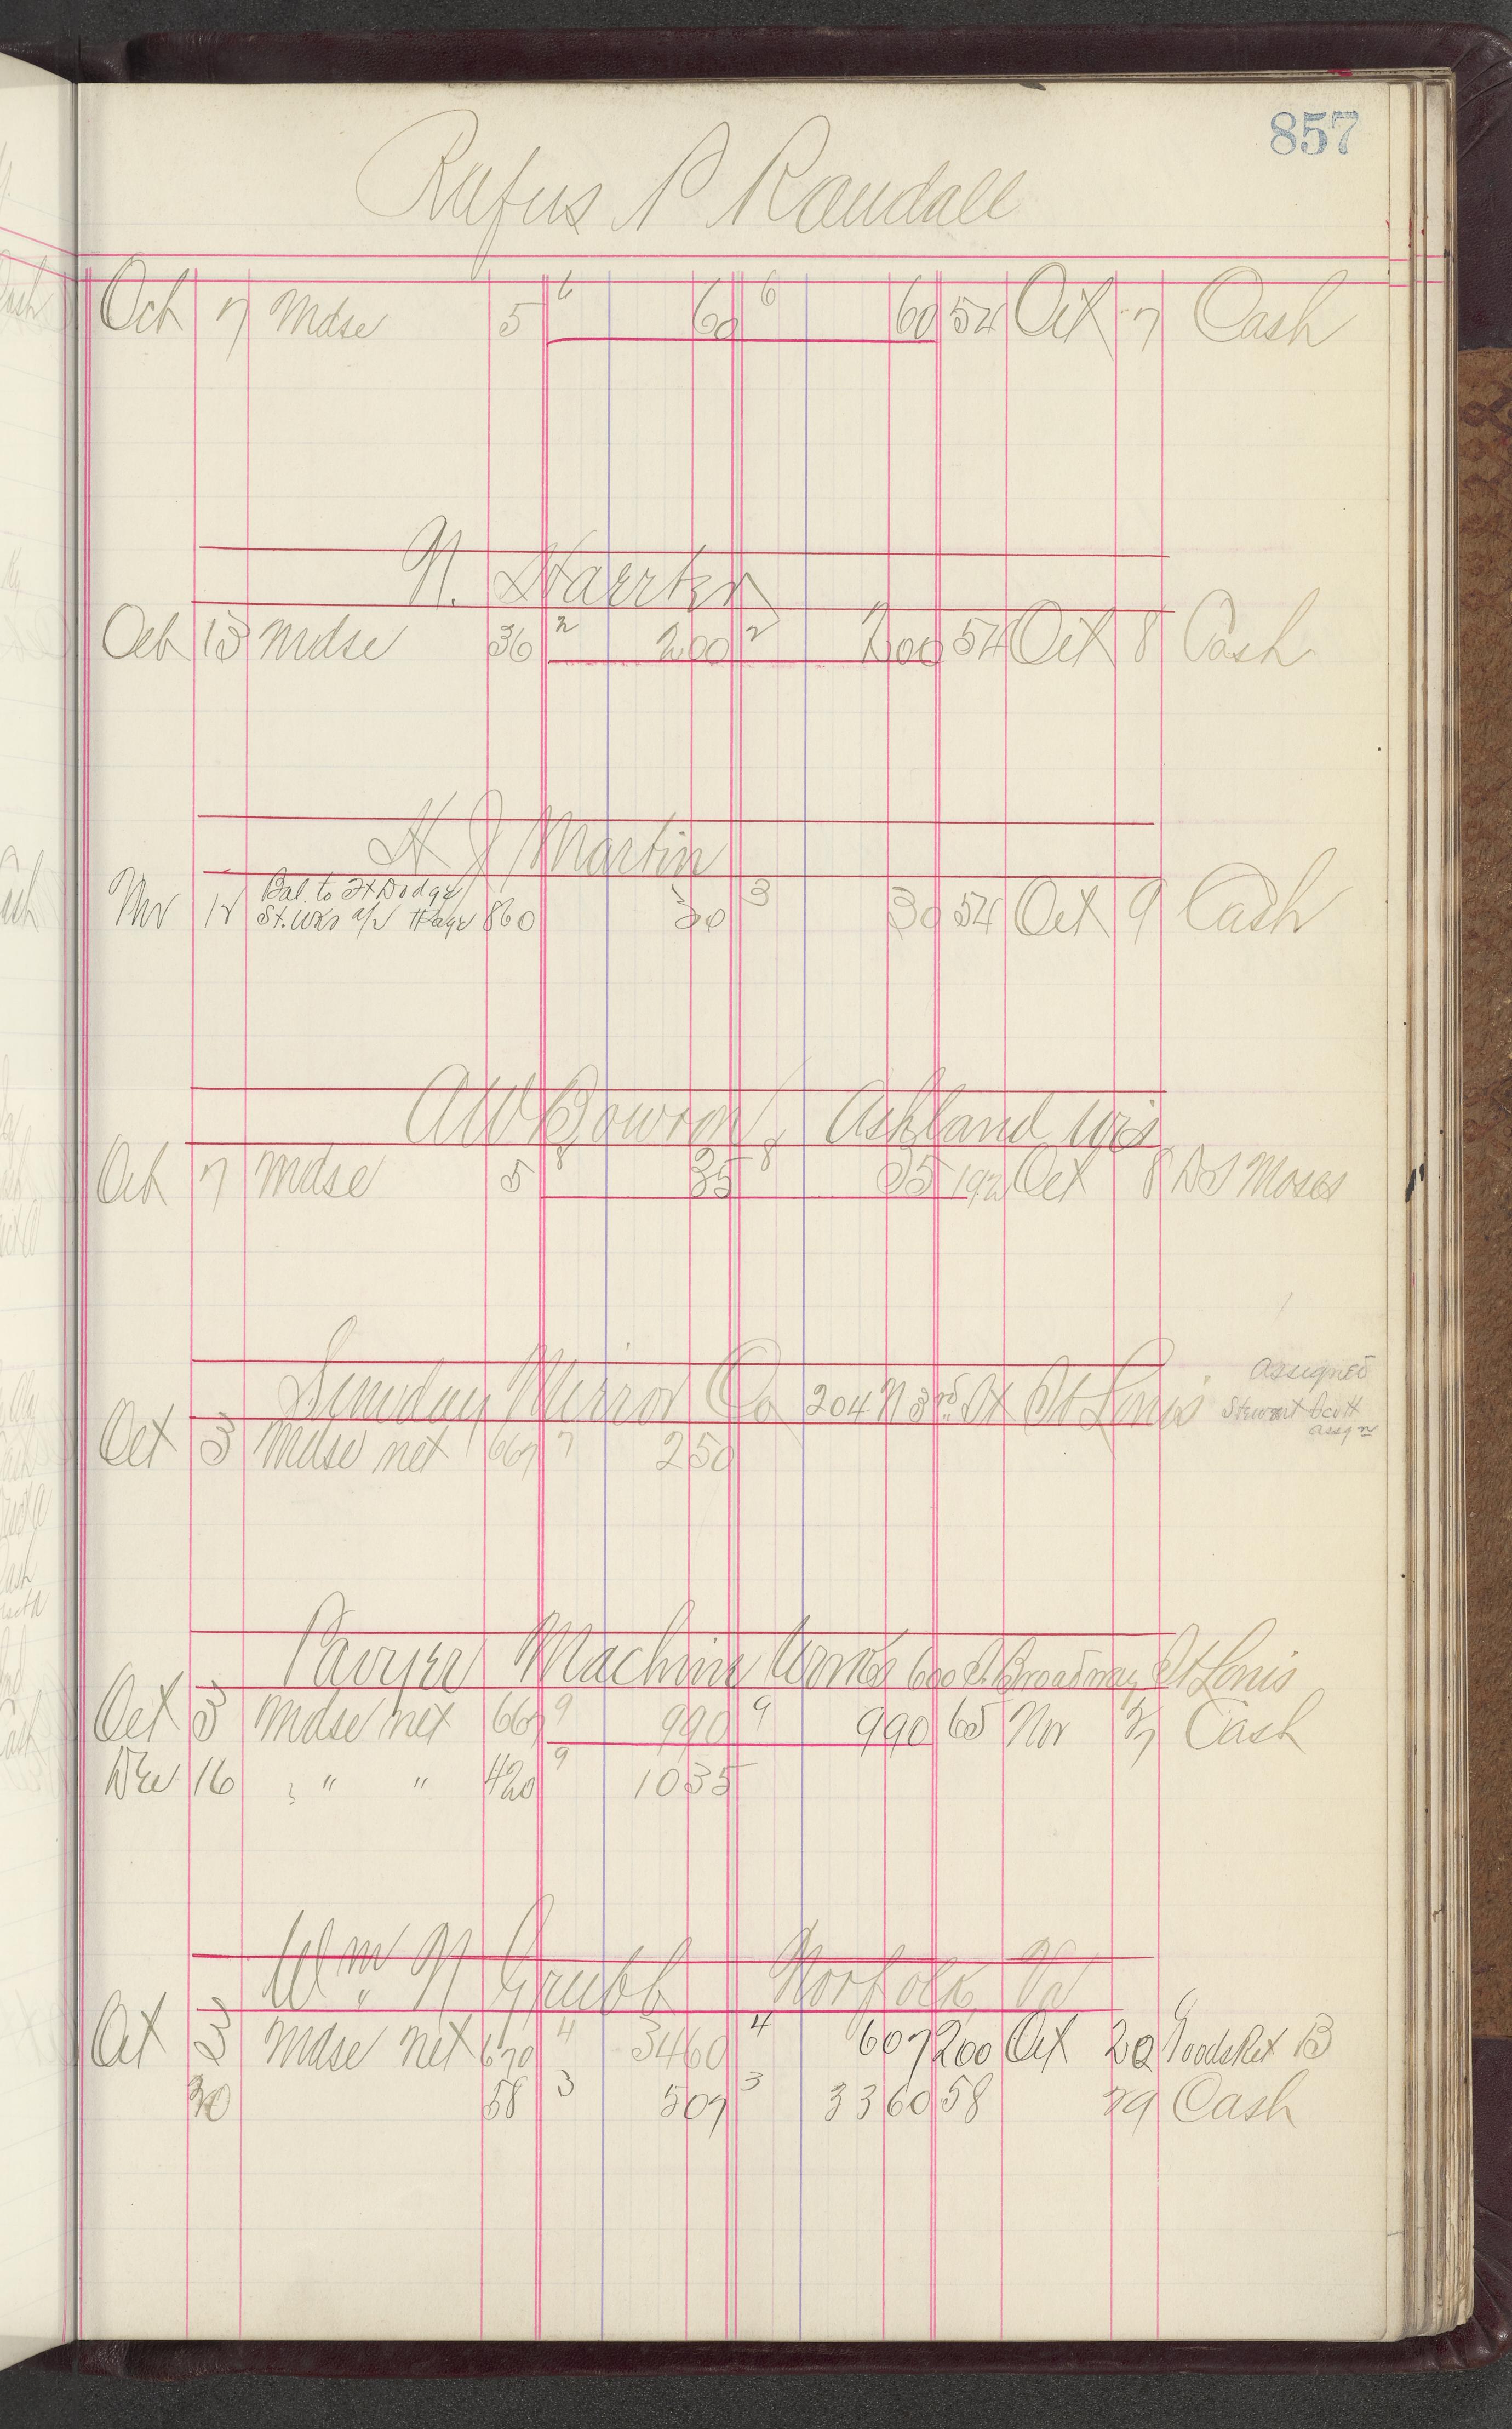 857
Rufus P Randall
Oct 7 Mdse 5 6 60 6 60 54 Oct 7 Cash
N.
Oct 13 Mdse 36 2 200 2 200 54 Oct 8 Cash
H J Martin
Nov 12 Bal. to Ft Dodge
St. Wks a/c Page 860 30 3 30 54 Oct 9 Cash
A W Bowron, Ashland Wis
Oct 7 Mdse 5 8 35 8 35 192 Oct 8 D S Moses
Assigned
Sunday Mirror Co 204 N 3rd St St Louis Stewart Scott
Assgn
Oct 3 Mdse net 667 7 250
Machine Works 600 S. Broadway St Louis
Oct 3 Mdse net 667 9 990 9 990 65 Nov Cash
Dec 16 " " 420 9 1035
Wm N Grubb Norfolk Va
Oct 3 Mdse net 670 4 3460 4 607 200 Oct 20 Goods Ret B
30 58 3 507 3 3360 58 29 Cash